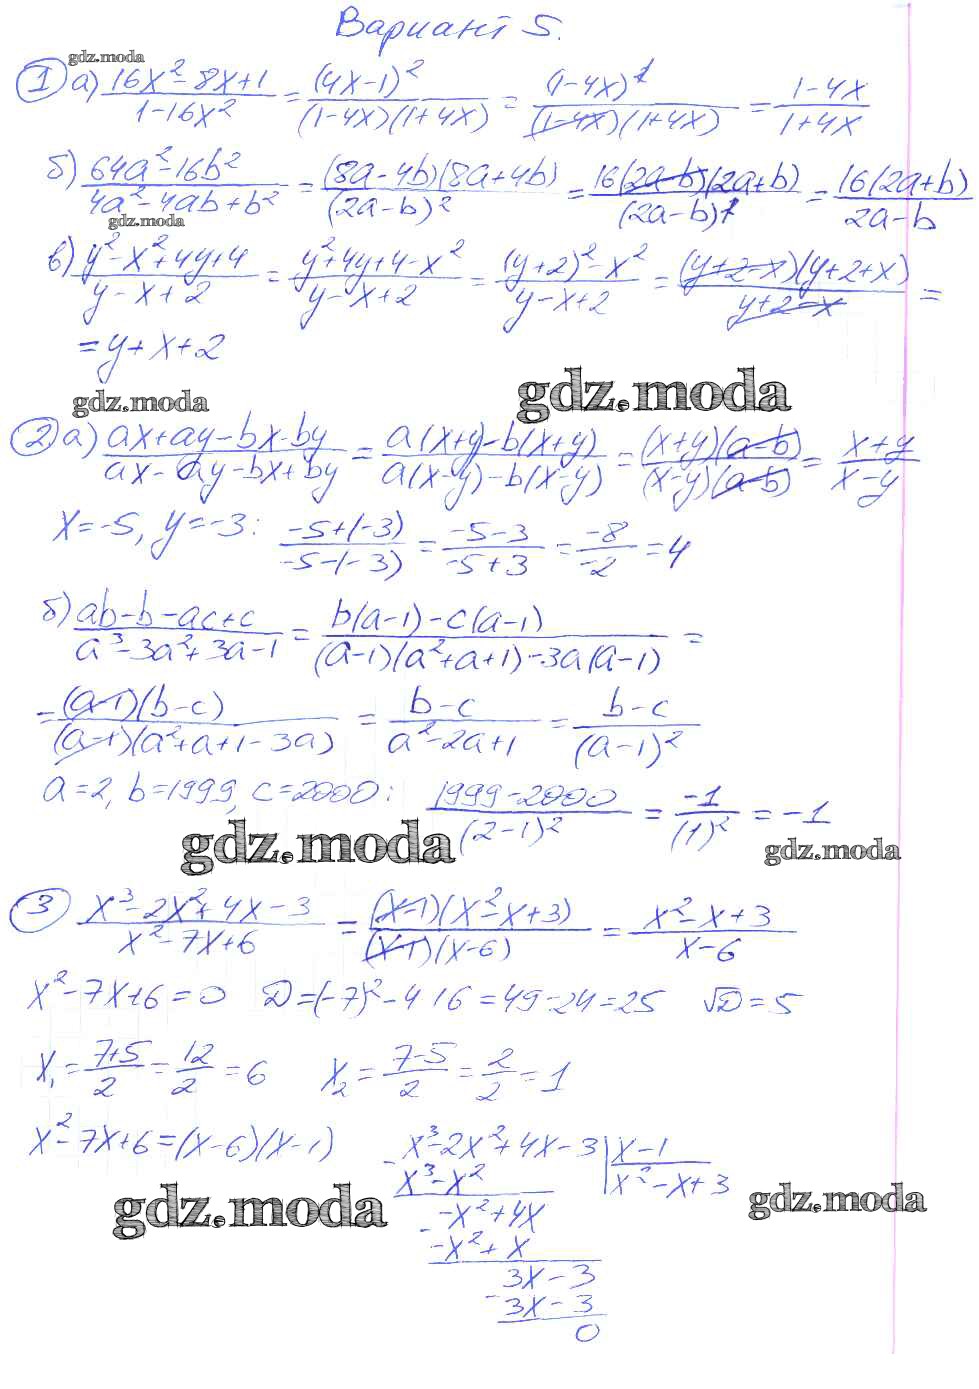 Вариант 5.
gdz.moda
① а) (16x² - 8x + 1)/(1 - 16x²) = (4x - 1)²/((1 - 4x)(1 + 4x)) = (1 - 4x)²/((1 - 4x)(1 + 4x)) = (1 - 4x)/(1 + 4x)
б) (64a² - 16b²)/(4a² - 4ab + b²) = ((8a - 4b)(8a + 4b))/(2a - b)² = (16(2a - b)(2a + b))/(2a - b)² = (16(2a + b))/(2a - b)
gdz.moda
в) (y² - x² + 4y + 4)/(y - x + 2) = (y² + 4y + 4 - x²)/(y - x + 2) = ((y + 2)² - x²)/(y - x + 2) = ((y + 2 - x)(y + 2 + x))/(y + 2 - x) =
= y + x + 2
gdz.moda gdz.moda
② а) (ax + ay - bx - by)/(ax - ay - bx + by) = (a(x + y) - b(x + y))/(a(x - y) - b(x - y)) = ((x + y)(a - b))/((x - y)(a - b)) = (x + y)/(x - y)
x = -5, y = -3 : (-5 + (-3))/(-5 - (-3)) = (-5 - 3)/(-5 + 3) = (-8)/(-2) = 4
б) (ab - b - ac + c)/(a³ - 3a² + 3a - 1) = (b(a - 1) - c(a - 1))/((a - 1)(a² + a + 1) - 3a(a - 1)) =
= ((a - 1)(b - c))/((a - 1)(a² + a + 1 - 3a)) = (b - c)/(a² - 2a + 1) = (b - c)/(a - 1)²
a = 2, b = 1999, c = 2000 : (1999 - 2000)/(2 - 1)² = (-1)/(1)² = -1
gdz.moda gdz.moda
③ (x³ - 2x² + 4x - 3)/(x² - 7x + 6) = ((x - 1)(x² - x + 3))/((x - 1)(x - 6)) = (x² - x + 3)/(x - 6)
x² - 7x + 6 = 0 D = (-7)² - 4·1·6 = 49 - 24 = 25 √D = 5
x₁ = (7 + 5)/2 = 12/2 = 6 x₂ = (7 - 5)/2 = 2/2 = 1
x² - 7x + 6 = (x - 6)(x - 1)
- x³ - 2x² + 4x - 3 | x - 1
x³ - x² | x² - x + 3
gdz.moda gdz.moda
- -x² + 4x
-x² + x
- 3x - 3
3x - 3
0